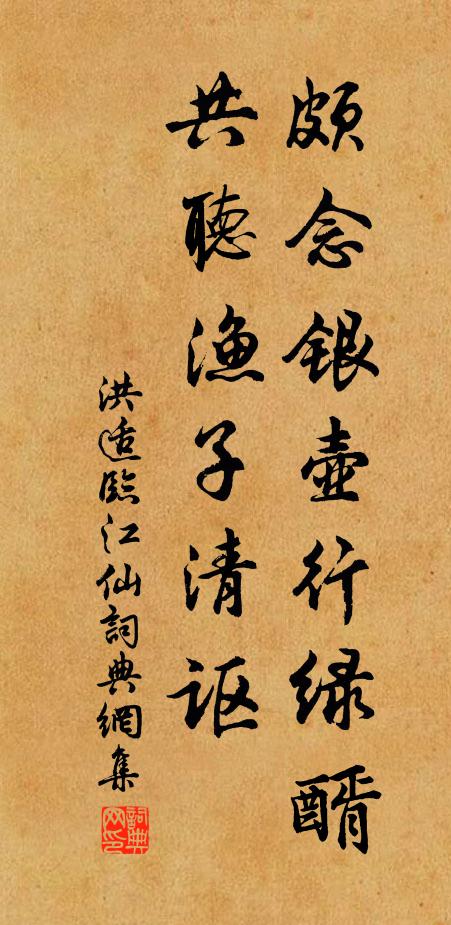 颇念银壶行绿醑
共聽渔子清讴
洪适臨江仙詞典網集
詞典网印